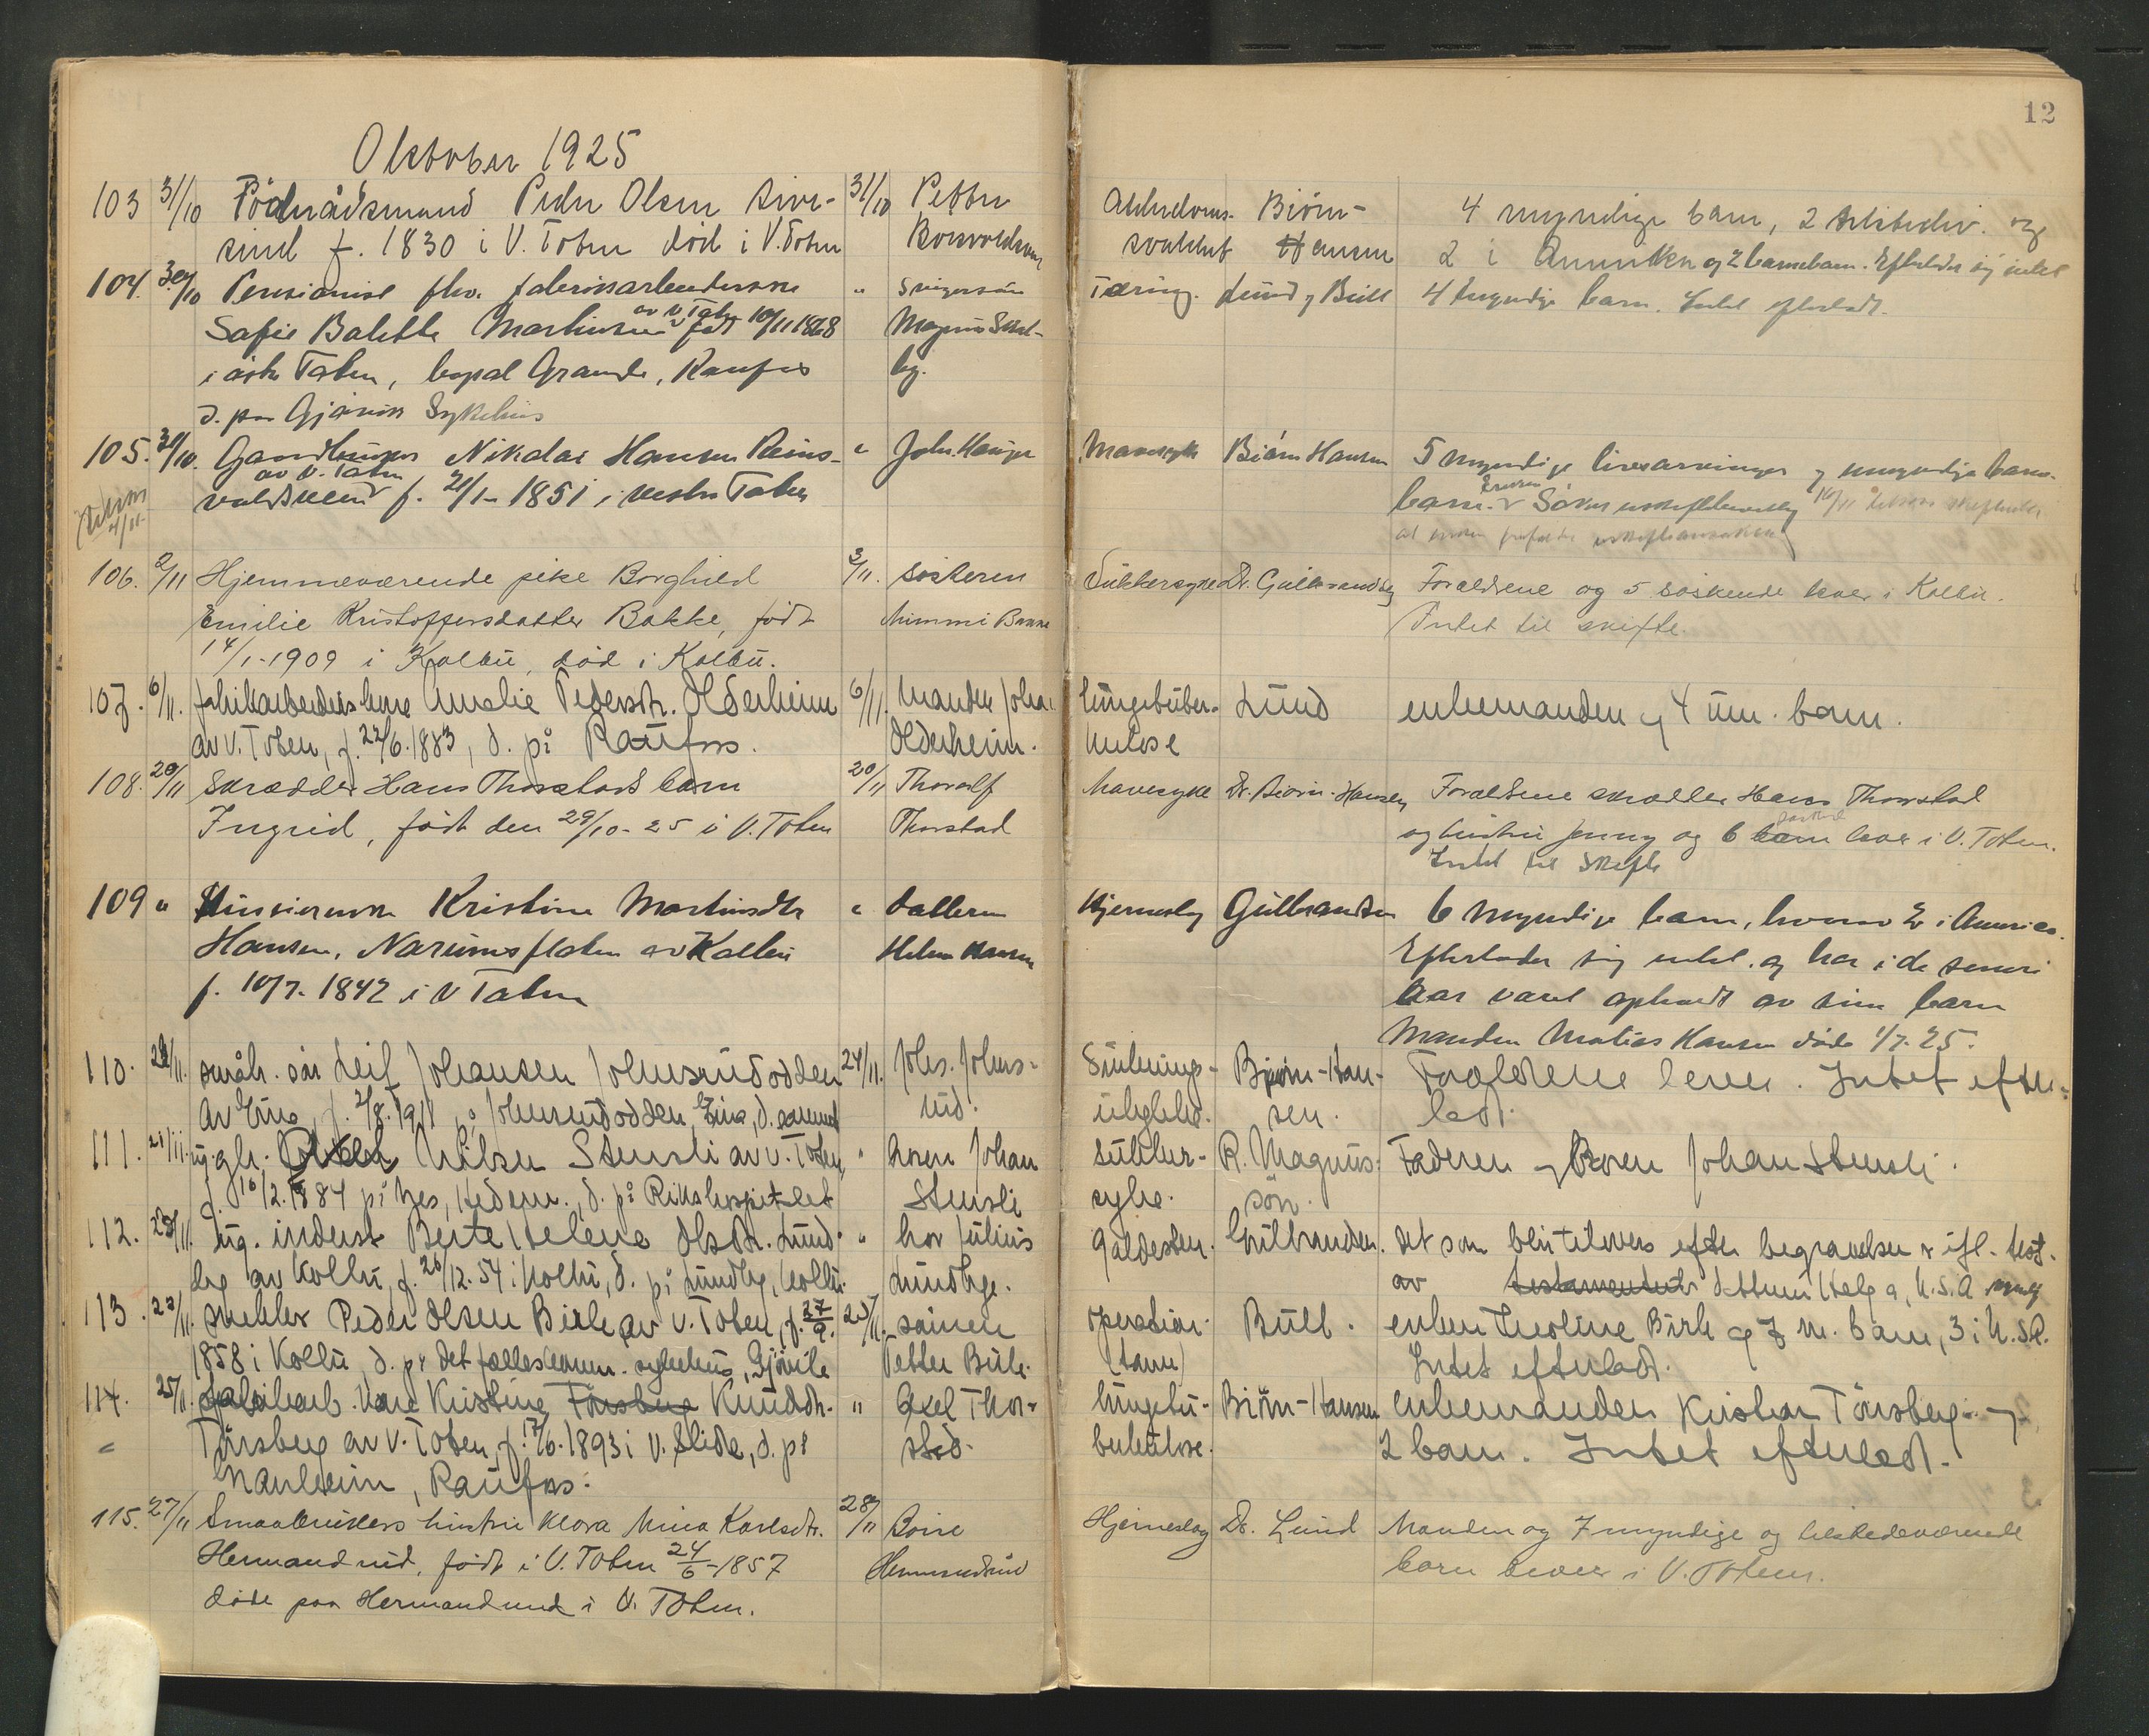 12
Oktober 1925
103 31/10 Födrådsmand Peder Olsen Sive-
sind f. 1830 i V. Toten död i V. Toten
31/10 Petter
Alderdoms- Björn-
svakhet Hansen
4 myndige barn, 2 tilstedev. og
2 i Amerika og 2 barnebarn. Efterlader sig intet
104. 30/10 Pensionist fhv. fabrikarbeiderske
Sofie Balette Martinsen av V. Toten født 10/11 1868
i östre Toten, bopæl Grande, Raufos
d. paa Gjövik Sykehus
" Svigersön
Magnus
Tæring. Lund og Bull
4 myndige barn. Intet efterladt.
105. 30/10. Gaardbruker Nikolai Hansen Reins-
voldseie av V. Toten f. 21/1 - 1851 i vestre Toten
" Johs. Hauger
Mavesyk Björn Hansen
5 myndige livsarvinger og umyndige barne-
barn. Enken Söker uskiftebevilling
106. 2/11 Hjemmeværende pike Borghild
Emilie Kristoffersdatter Bakke, født
14/1-1909 i Kolbu, død i Kolbu.
3/11. Søsteren
Mimmi Bakke
Sukkersyke Dr. Gulbrandsen
Forældrene og 5 søskende lever i Kolbu.
Intet til skifte.
107. 6/11. fabrikarbeiders kone Amalie Pedersdtr. Olderheim
av V. Toten, f. 22/6. 1883, d. på Raufoss.
6/11. Manden Johan
Olderheim.
lungetuber- Lund
kulose
enkemanden og 4 um. barn.
108. 20/11 Skrædder Hans Thorstads barn
Ingrid, født den 29/10-25 i V. Toten
20/11 Thoralf
Thorstad
Mavesyke Dr. Bjørn-Hansen
Forældrene skrædder Hans Thorstad
og hustru Jenny og 6 barn lever i V. Toten.
Intet til skifte
109 " Pensionerte Kristine Martinsdtr
Hansen, Narumsflaten av Kolbu
f. 10/7. 1842 i V Toten
" datteren
Helene Hansen
Hjerneslag Gulbrandsen
6 myndige barn, hvorav 2 i Amerika.
Efterlader sig intet. og har i de senere
aar været opholdt av sine barn
Manden Matias Hansen döde 1/7. 25.
110. 22/11. småbr. sön Leif Johansen Johnsrudodden
av Eina, f. 2/8. 1911 på Johnsrudodden, Eina, d. sammest
24/11. Johs. Johns-
rud.
Björn-Han-
sen.
Forældrene lever. Intet efter-
ladt.
111. 21/11. ugh. Nilsen Stensli av V. Toten,
f. 16/12. 1884 på Nes, Hedem., d. på Rikshospitalet
" broren Johan
Stensli
Sukker- R. Magnus-
syke. sön.
Faderen og Broren Johan Stensli.
112. 22/11. ug. inderst Berte Helene Olsdtr. Lund-
by av Kolbu, f. 26/12. 54 i Kolbu, d. på Lundby, Kolbu.
" bror Julius
Lundbye.
Galdesten. Gulbrandsen.
det som blir tilovers efter begravelsen er ifl. test.
av testamentert datteren Helga, U.S.A.
113. 22/11. snekker Peder Olsen Birk av V. Toten, f. 27/9.
1858 i Kolbu, d. på det felleskomm. sykehus, Gjövik
25/11. sönnen
Petter Birk.
operation Bull.
(tarm)
enken Karoline Birk og 7 m. barn, 3 i U.S.A.
Intet efterladt.
114. 25/11. fabrikarb. kone Kristine Tönsberg Knudsdtr.
Tönsberg av V. Toten, f. 17/6. 1893 i V. Slidre, d. på
Manheim, Raufos.
" Axel Thor-
stad.
lungetu- Björn-Hansen
berkulose.
enkemanden Kristian Tönsberg og
2 barn. Intet efterladt.
115. 27/11 Smaabrukers hustru Klara Mina Karlsdtr.
Hermandrud, født i V. Toten 24/6-1857
døde paa Hermandrud i V. Toten.
28/11
Hermandrud
Hjerneslag Dr. Lund
Manden og 7 myndige og tilstedeværende
barn lever i V. Toten.